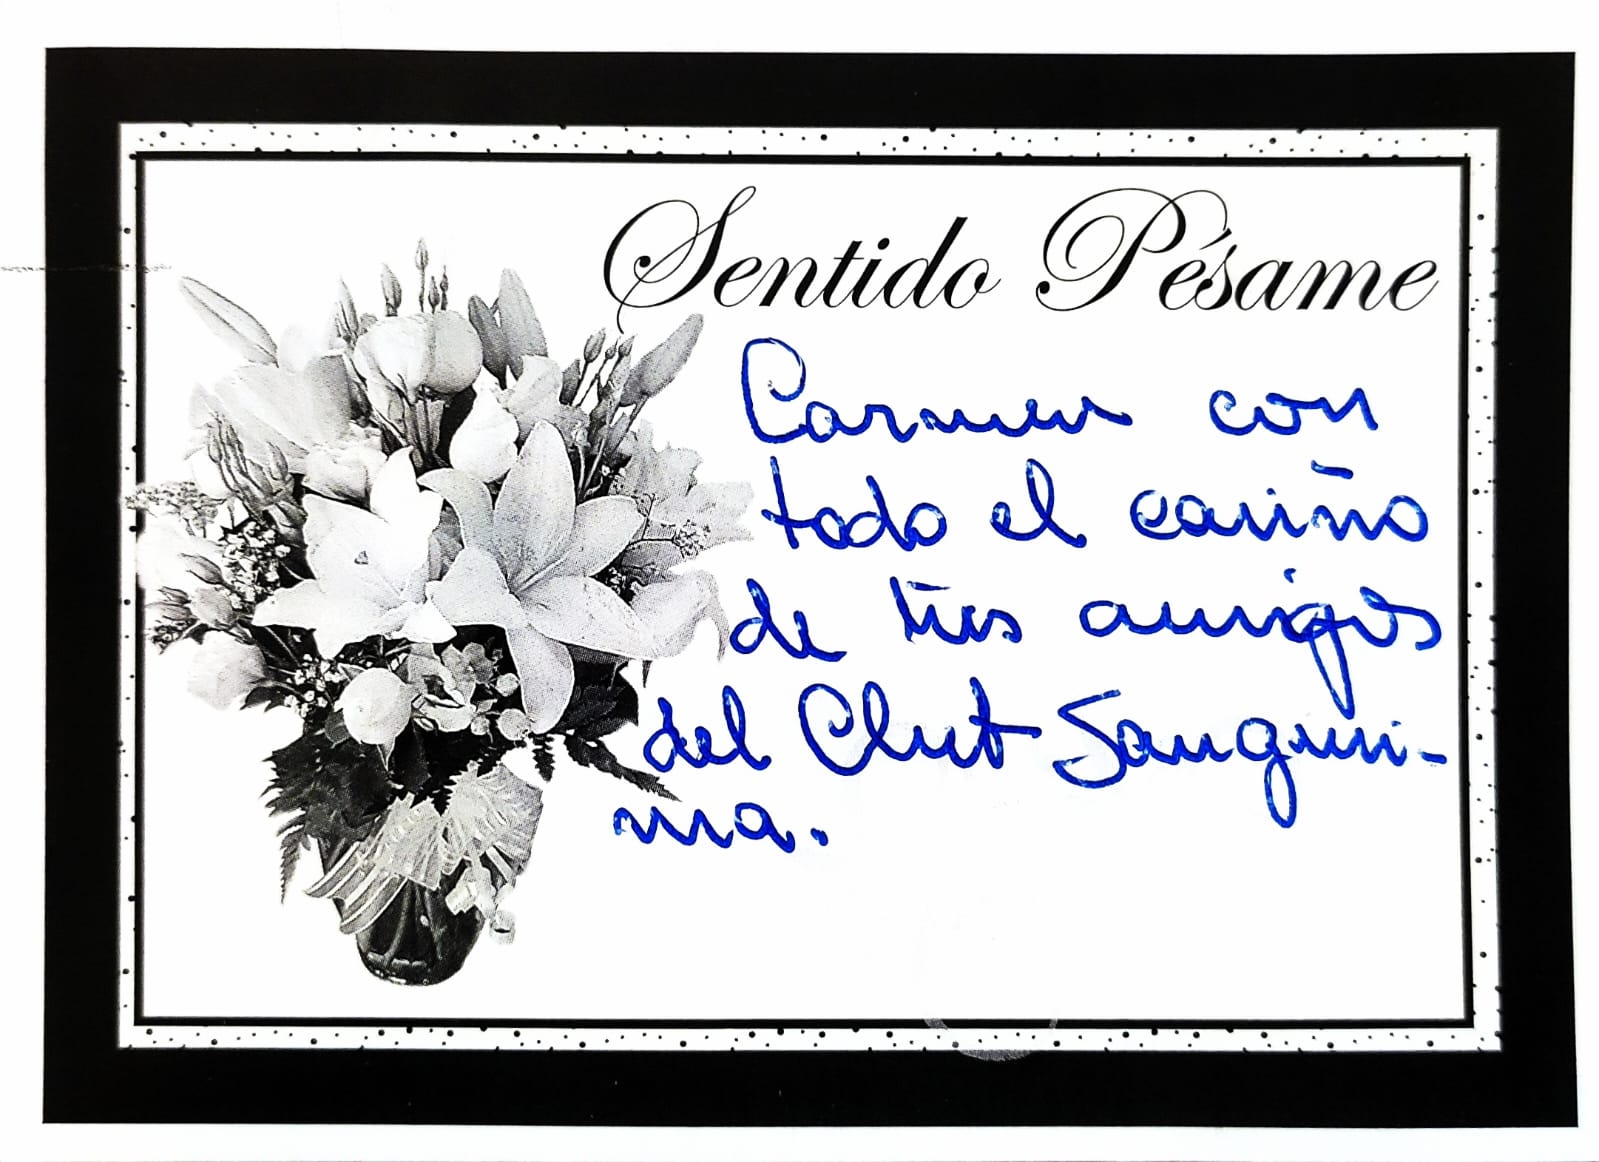 Sentido Pésame
Carmen con
todo el cariño
de tus amigos
del Club Sanguini-
na.